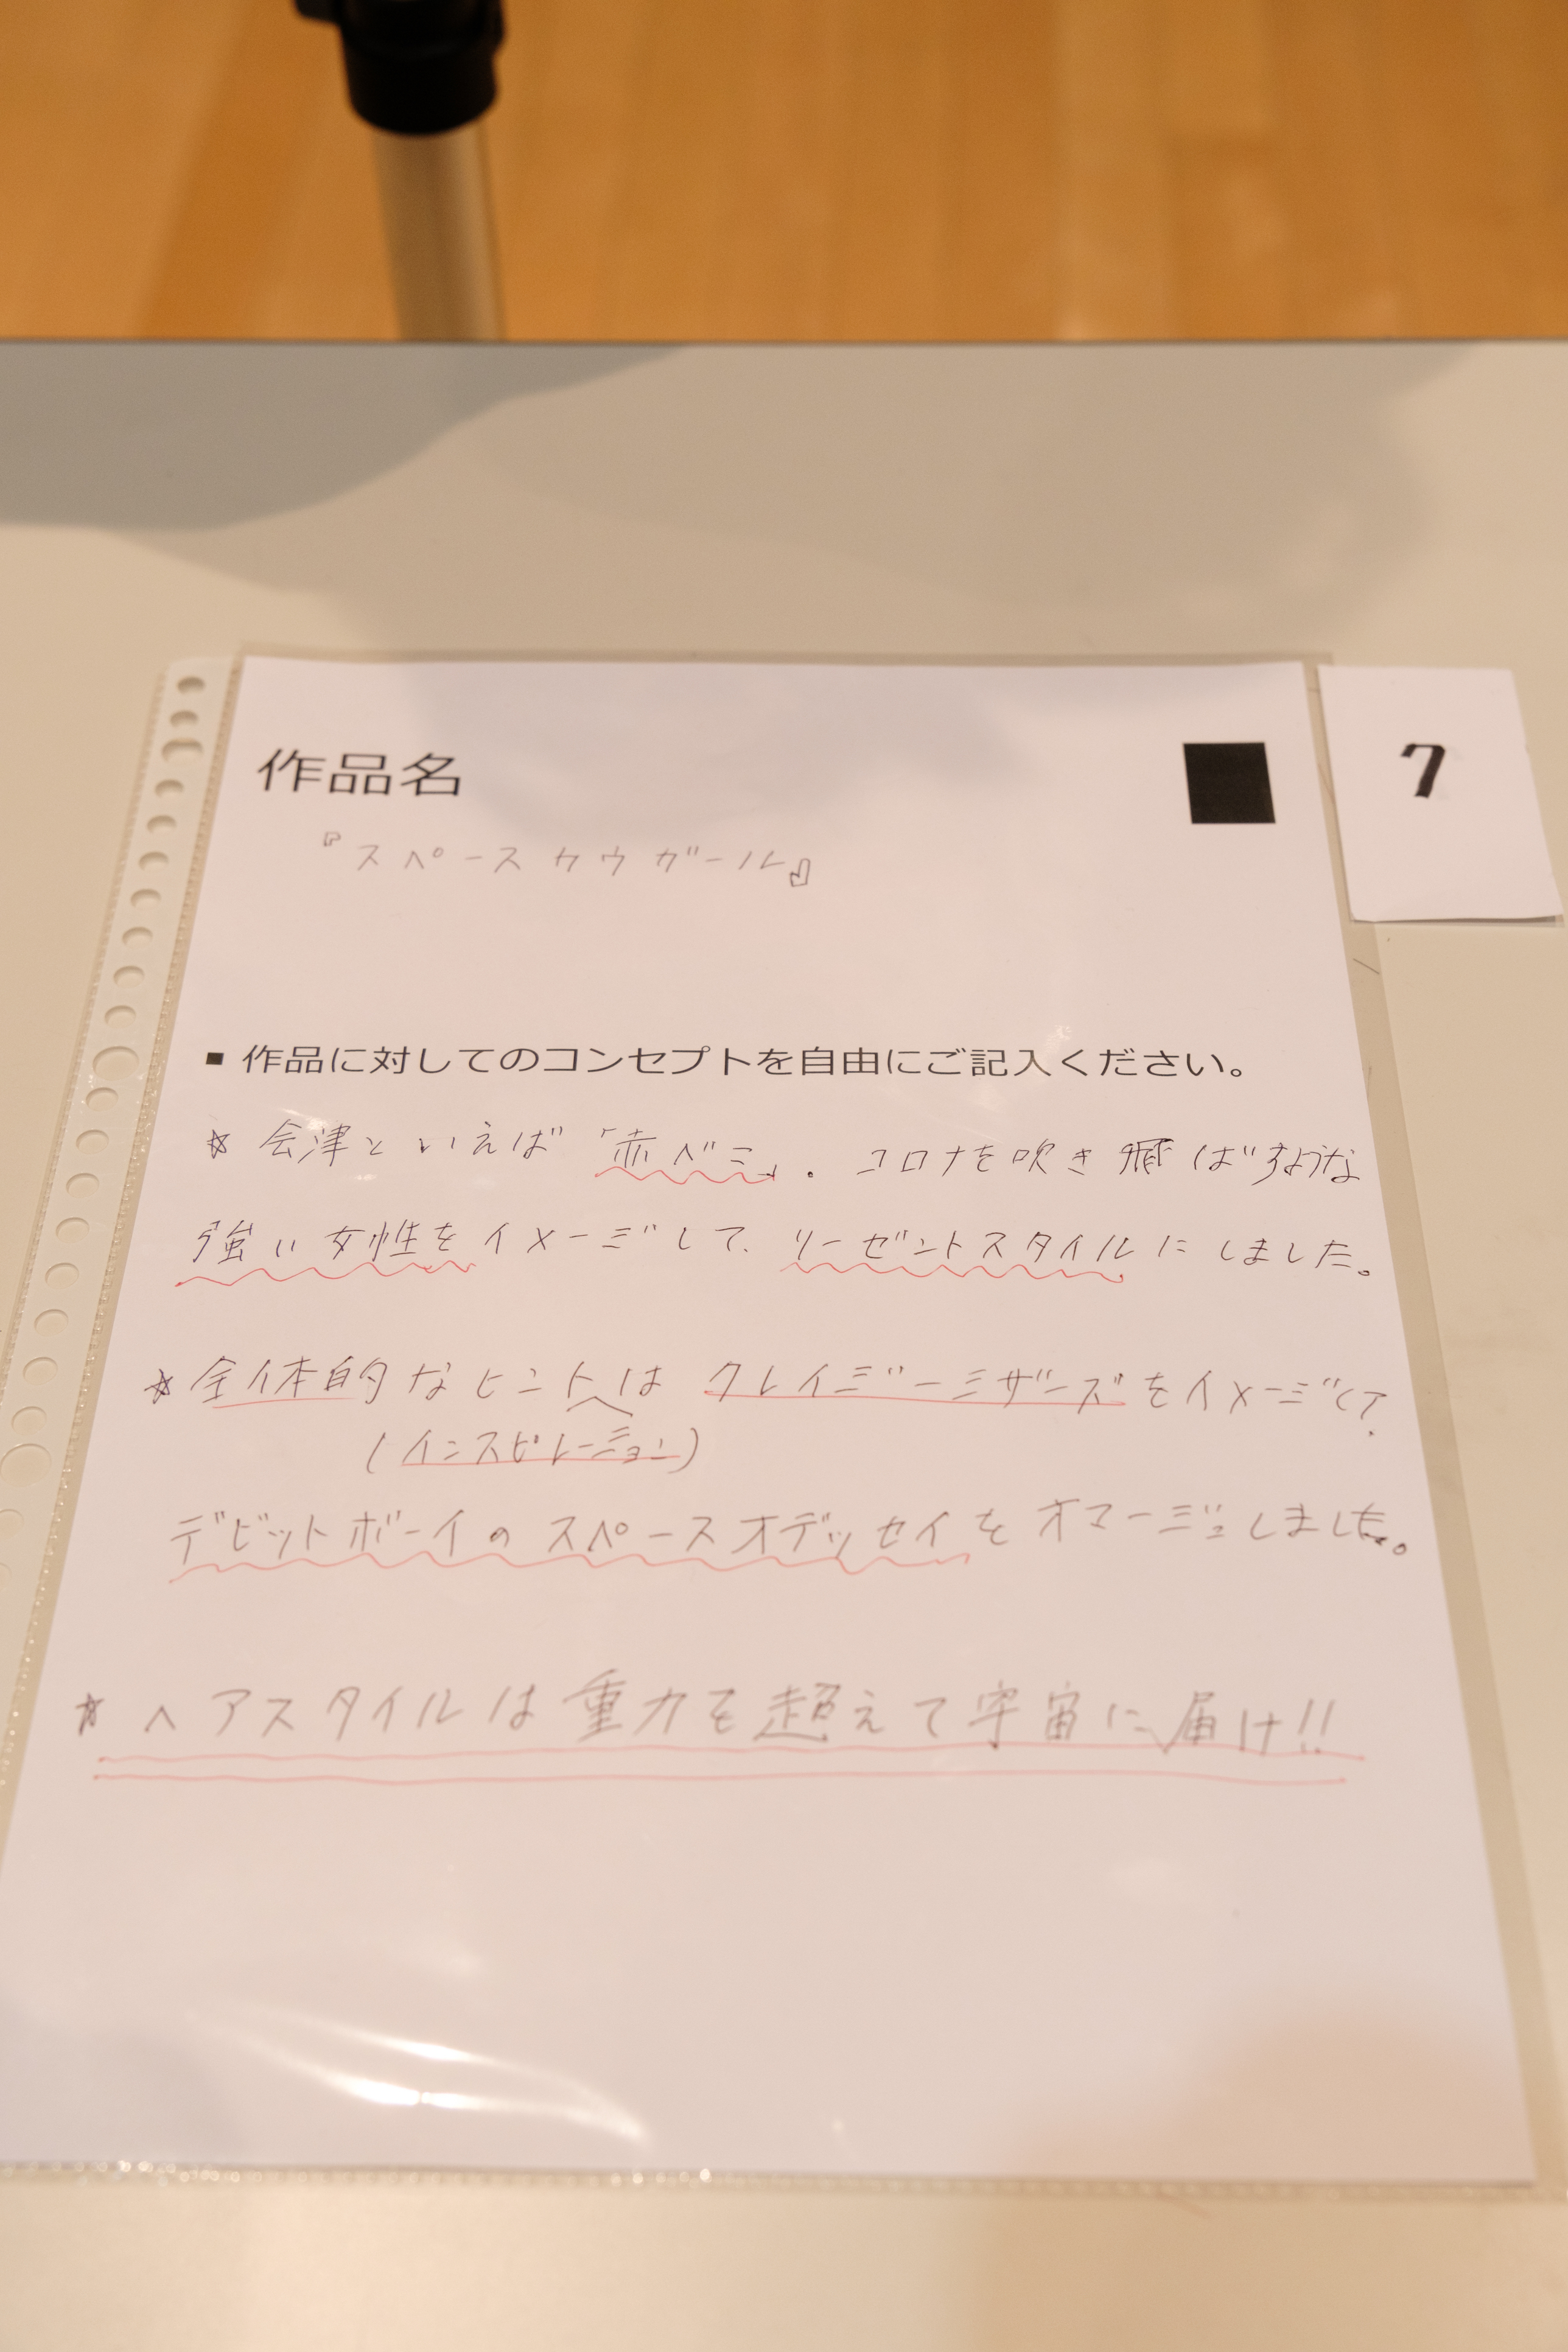 作品名
7
『スペースカウガール』
▪ 作品に対してのコンセプトを自由にご記入ください。
☆ 会津といえば「赤ベコ」. コロナを吹き飛ばすような
強い女性をイメージして、リーゼントスタイルにしました。
☆ 全体的なヒントは クレイジーミザーズをイメージして、
(インスピレーション)
デビットボーイの スペースオデッセイを オマージュしました。
☆ ヘアスタイルは重力を超えて宇宙に届け!!